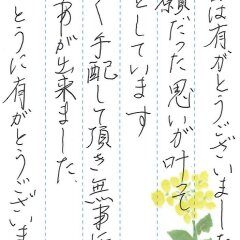 は有がとうございました
願だった思いが叶そ
としています
く手配して頂き無事に
事が出来ました、
とうに有がとうございま